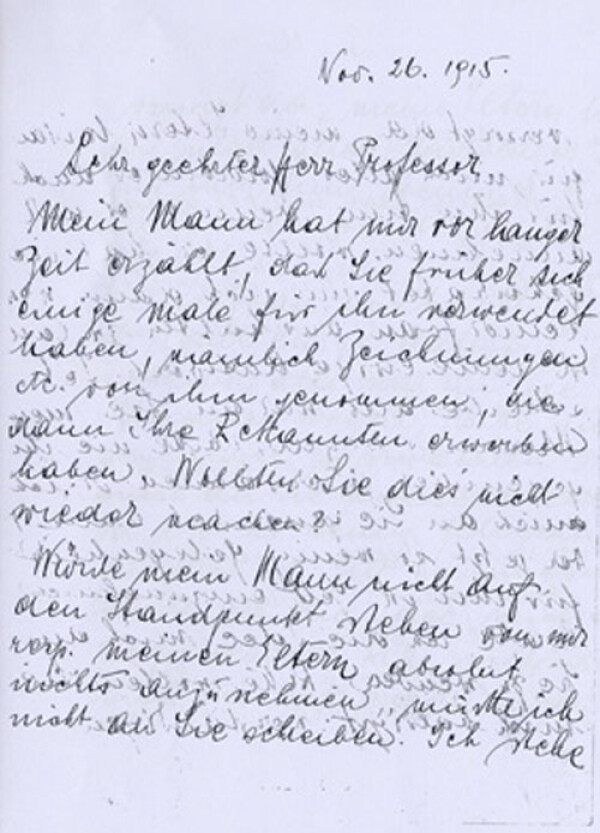 Nov. 26. 1915.
Sehr geehrter Herr Professor
Mein Mann hat mir vor langer
Zeit erzählt, das Sie früher sich
einige male für ihn verwendet
haben, nämlich Zeichnungen
etc. von ihm genommen, die
dann Ihre Bekannten erworben
haben. Wollten Sie dies nicht
wieder machen?
Würde mein Mann nicht auf
den Standpunkt stehen von mir
resp. meinen Eltern absolut
nichts anzunehmen, müsste ich
nicht an Sie schreiben. Ich stehe